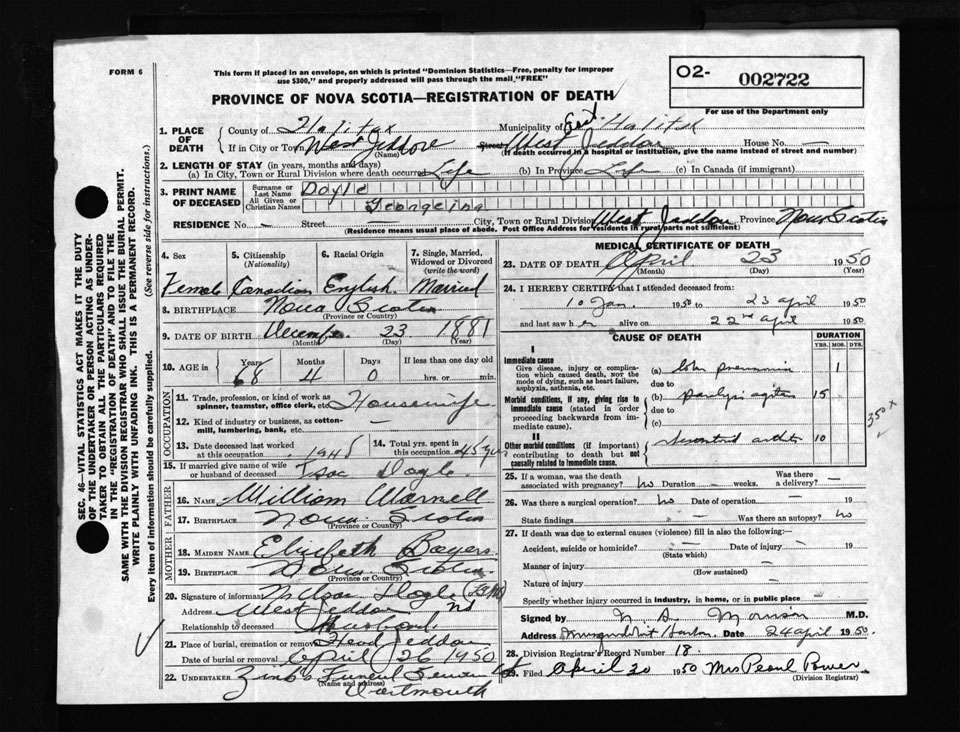 FORM 6
This form if placed in an envelope, on which is printed "Dominion Statistics—Free, penalty for improper
use $300," and properly addressed will pass through the mail "FREE"
PROVINCE OF NOVA SCOTIA—REGISTRATION OF DEATH
O2- 002722
For use of the Department only
SEC. 46—VITAL STATISTICS ACT MAKES IT THE DUTY
OF THE UNDERTAKER OR PERSON ACTING AS UNDER-
TAKER TO OBTAIN ALL THE PARTICULARS REQUIRED
IN THE "REGISTRATION OF DEATH" AND TO FILE THE
SAME WITH THE DIVISION REGISTRAR WHO SHALL ISSUE THE BURIAL PERMIT.
WRITE PLAINLY WITH UNFADING INK. THIS IS A PERMANENT RECORD.
Every item of information should be carefully supplied. (See reverse side for instructions.)
1. PLACE OF DEATH
County of Halifax Municipality of East Halifax
If in City or Town West Jeddore (Name) Street West Jeddore House No. —
(If death occurred in a hospital or institution, give the name instead of street and number)
2. LENGTH OF STAY (in years, months and days)
(a) In City, Town or Rural Division where death occurred Life (b) In Province Life (c) In Canada (if immigrant)
3. PRINT NAME OF DECEASED
Surname or Last Name Doyle
All Given or Christian Names Georgeina
RESIDENCE No. — Street City, Town or Rural Division West Jeddore Province Nova Scotia
(Residence means usual place of abode. Post Office Address for residents in rural parts not sufficient)
4. Sex 5. Citizenship (Nationality) 6. Racial Origin 7. Single, Married, Widowed or Divorced (write the word)
Female Canadian English Married
8. BIRTHPLACE Nova Scotia
(Province or Country)
9. DATE OF BIRTH December 23 1881
(Month) (Day) (Year)
10. AGE in Years Months Days If less than one day old
68 4 0 hrs. or min.
OCCUPATION
11. Trade, profession, or kind of work as spinner, teamster, office clerk, etc. Housewife
12. Kind of industry or business, as cotton-mill, lumbering, bank, etc. —
13. Date deceased last worked at this occupation 1945 14. Total yrs. spent in this occupation 45 yrs
15. If married give name of wife or husband of deceased Isac Doyle
FATHER
16. NAME William Warnell
17. BIRTHPLACE Nova Scotia
(Province or Country)
MOTHER
18. MAIDEN NAME Elizabeth Bayers
19. BIRTHPLACE Nova Scotia
(Province or Country)
20. Signature of informant Doyle
Address West Jeddore NS
Relationship to deceased Husband
21. Place of burial, cremation or removal Head Jeddore
Date of burial or removal April 26 1950
22. UNDERTAKER Zink's Funeral Service
(Name and address)
Dartmouth
MEDICAL CERTIFICATE OF DEATH
23. DATE OF DEATH April 23 1950
(Month) (Day) (Year)
24. I HEREBY CERTIFY that I attended deceased from
10 Jan. 1950 to 23 April 1950
and last saw her alive on 22nd April 1950
CAUSE OF DEATH DURATION
YRS. MOS. DYS.
I
Immediate cause
Give disease, injury or complication which caused death, not the mode of dying, such as heart failure, asphyxia, asthenia, etc.
(a) lobar pneumonia 1
due to
Morbid conditions, if any, giving rise to immediate cause (stated in order proceeding backwards from immediate cause).
(b) paralysis agitans 15
due to
(c)
II
Other morbid conditions (if important) contributing to death but not causally related to immediate cause.
10
350 x
25. If a woman, was the death associated with pregnancy? no Duration — weeks. Was there a delivery? —
26. Was there a surgical operation? no Date of operation — 19
State findings — Was there an autopsy? no
27. If death was due to external causes (violence) fill in also the following:
Accident, suicide or homicide? — Date of injury — 19
(State which)
Manner of injury —
(How sustained)
Nature of injury —
Specify whether injury occurred in industry, in home, or in public place —
Signed by M.D.
Address Musquodoboit Harbor Date 24 April 1950.
28. Division Registrar's Record Number 18.
29. Filed April 30 1950 Mrs Pearl Power
(Division Registrar)